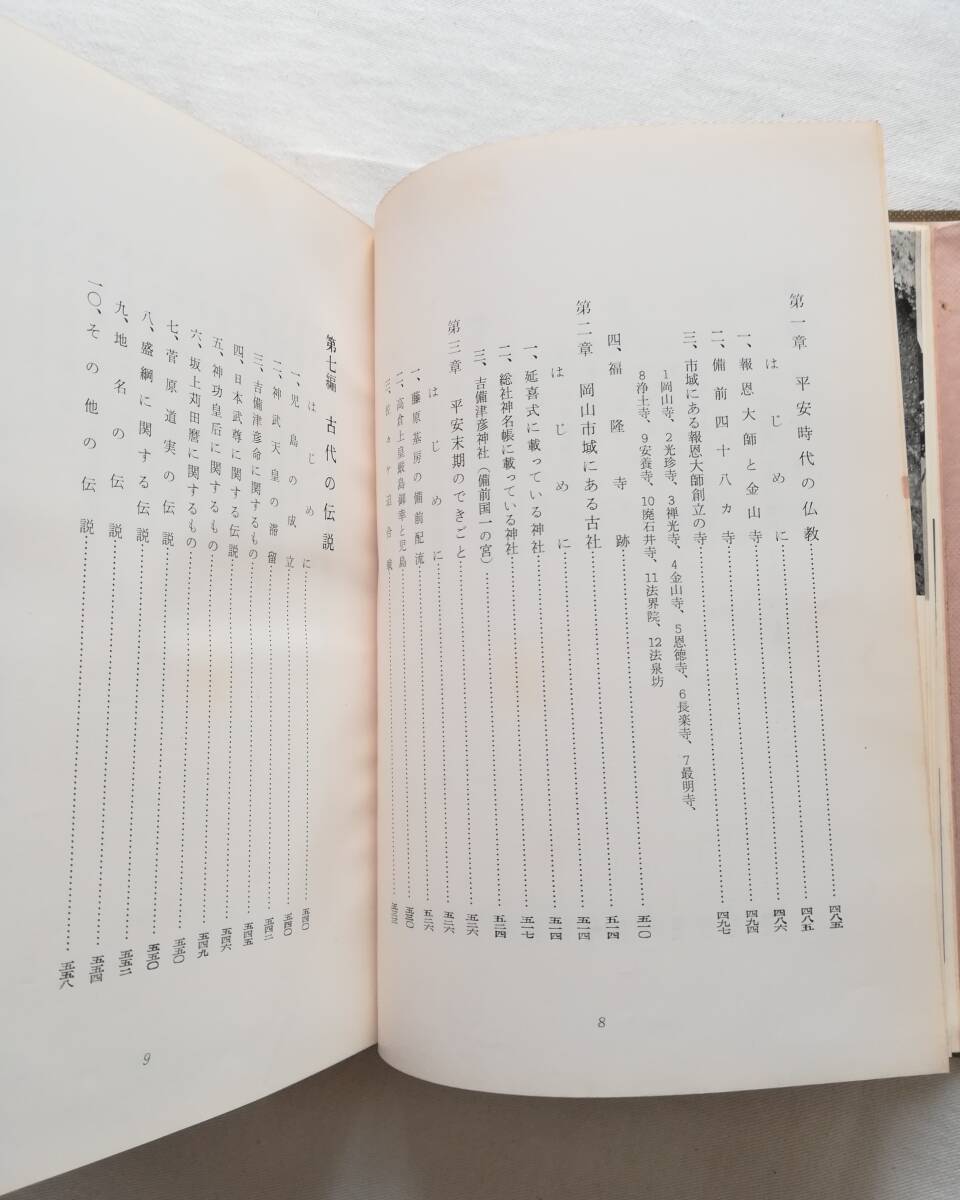 第一章 平安時代の仏教……四八五
はじめに……四八五
一、報恩大師と金山寺……四八六
二、備前四十八カ寺……四九四
三、市域にある報恩大師創立の寺……四九七
1岡山寺、2光珍寺、3禅光寺、4金山寺、5恩徳寺、6長楽寺、7最明寺、
8浄土寺、9安養寺、10廃石井寺、11法界院、12法泉坊
四、福隆寺跡……五一〇
第二章 岡山市域にある古社……五一四
はじめに……五一四
一、延喜式に載っている神社……五一四
二、総社神名帳に載っている神社……五一七
三、吉備津彦神社（備前国一の宮）……五二四
第三章 平安末期のできごと……五二六
はじめに……五二六
一、藤原基房の備前配流……五二六
二、高倉上皇厳島御幸と児島……五三〇
三、……五三二
8
第七編 古代の伝説
はじめに……五四〇
一、児島の成立……五四〇
二、神武天皇の滞留……五四二
三、吉備津彦命に関するもの……五四五
四、日本武尊に関する伝説……五四六
五、神功皇后に関するもの……五四九
六、坂上苅田麿に関するもの……五五〇
七、菅原道実の伝説……五五〇
八、盛綱に関する伝説……五五二
九、地名の伝説……五五四
一〇、その他の伝説……五五八
9